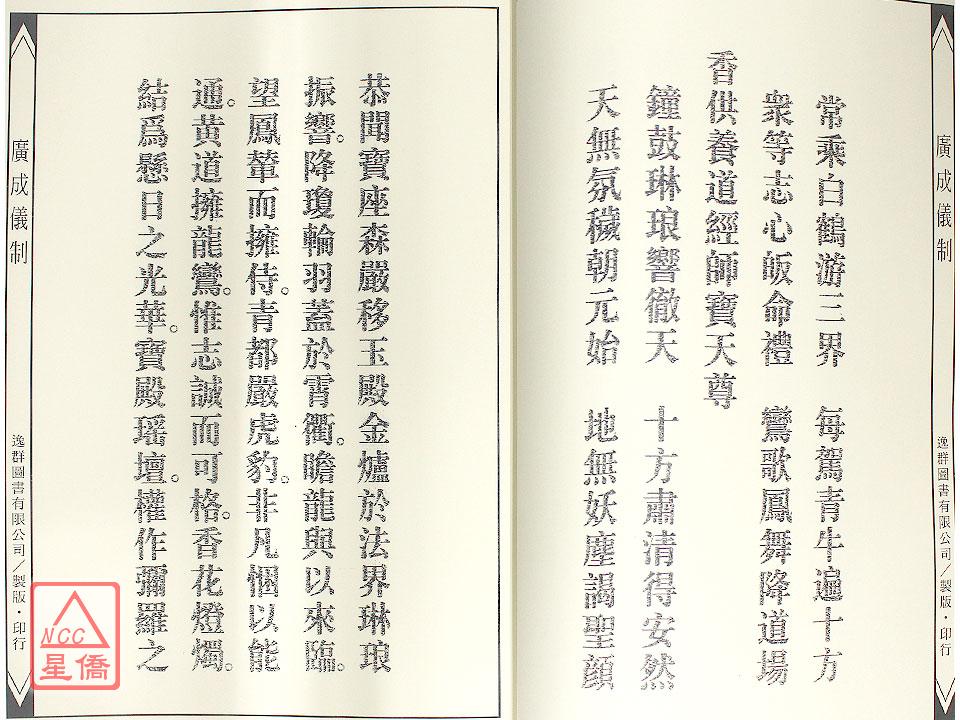 廣成儀制
逸群圖書有限公司／製版・印行
常乘白鶴游三界　每駕青牛遍十方
衆等志心皈命禮　鸞歌鳳舞降道場
香供養道經師寶天尊
鐘鼓琳琅響徹天　十方肅清得安然
天無氛穢朝元始　地無妖塵謁聖顔
恭聞寶座森嚴移玉殿金爐於法界琳琅
振響。降瓊輪羽蓋於霄衢。瞻龍與以來臨。
望鳳輦而擁侍。青都嚴虎豹。非凡悃以能
通。黄道擁龍鸞。惟志誠而可格。香花燈燭。
結爲懸日之光華。寶殿瑶壇。權作彌羅之
廣成儀制
逸群圖書有限公司／製版・印行
NCC
星僑